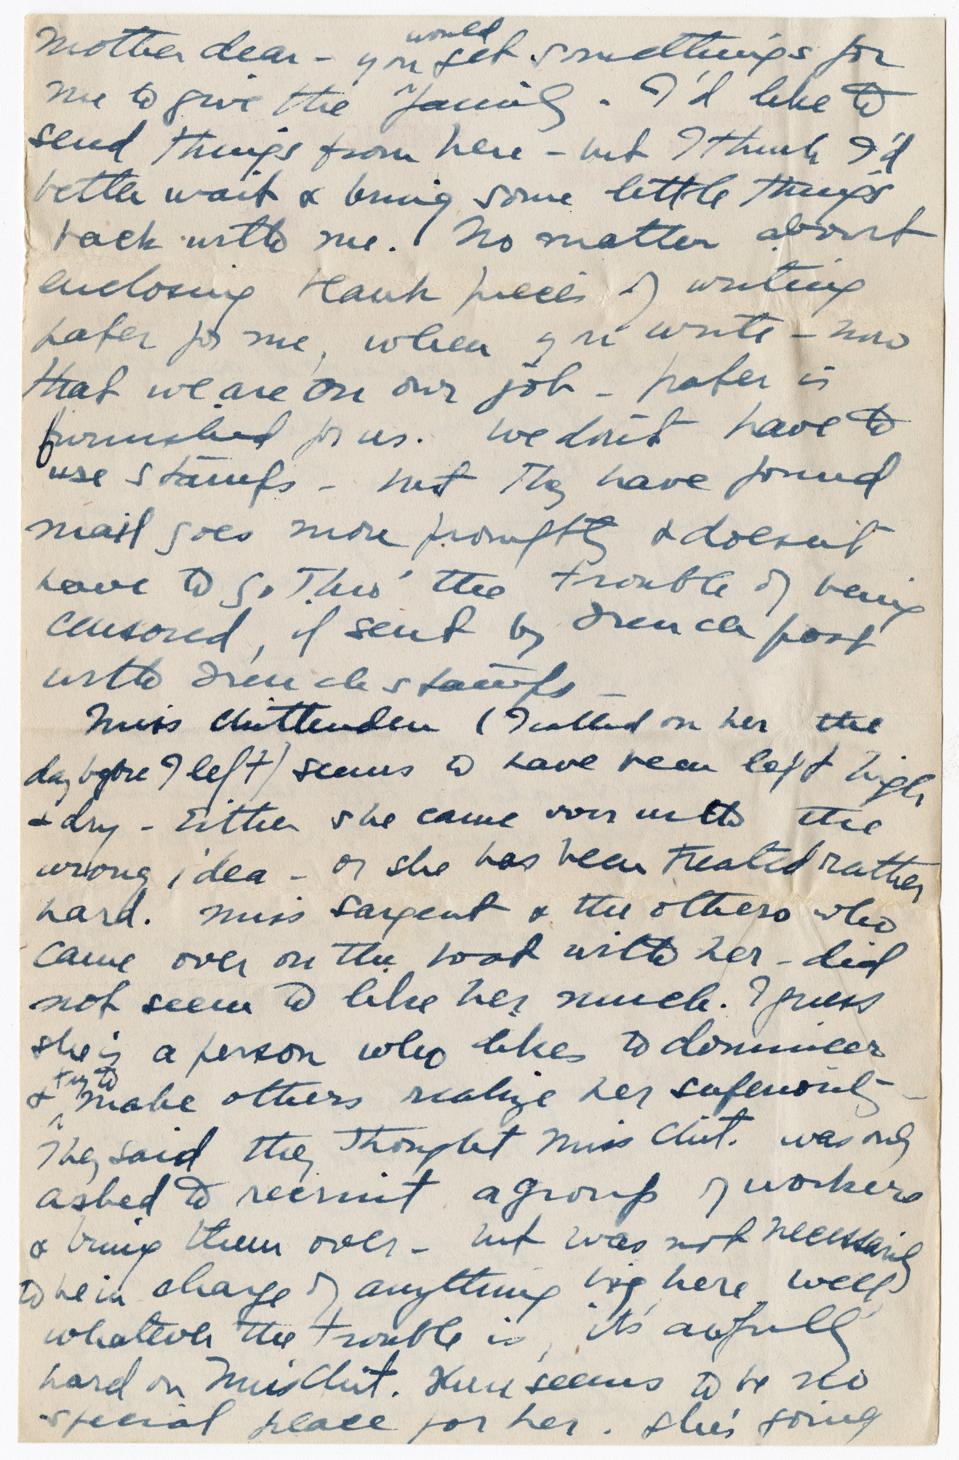 Mother dear - you would get somethings for
me to give the family. I'd like to
send things from here - but I think I'd
better wait & bring some little things
back with me. No matter about
enclosing blank pieces of writing
paper for me, when you write - now
that we are on our job - paper is
furnished for us. We don't have to
use stamps - but they have found
mail goes more promptly & doesn't
have to go thro' the trouble of being
censored, if sent by French post
with French stamps -
Miss Chittenden (I called on her the
day before I left) seems to have been left high
& dry - Either she came over with the
wrong idea - or she has been treated rather
hard. Miss Sargent & the others who
came over on the boat with her - did
not seem to like her much. I guess
she is a person who likes to domineer
& try to make others realize her superiority -
They said they thought Miss Chit. was only
asked to recruit a group of workers
& bring them over - but was not necessarily
to be in charge of anything big here. Well
whatever the trouble is, it's awfully
hard on Miss Chit. There seems to be no
special place for her. She's going